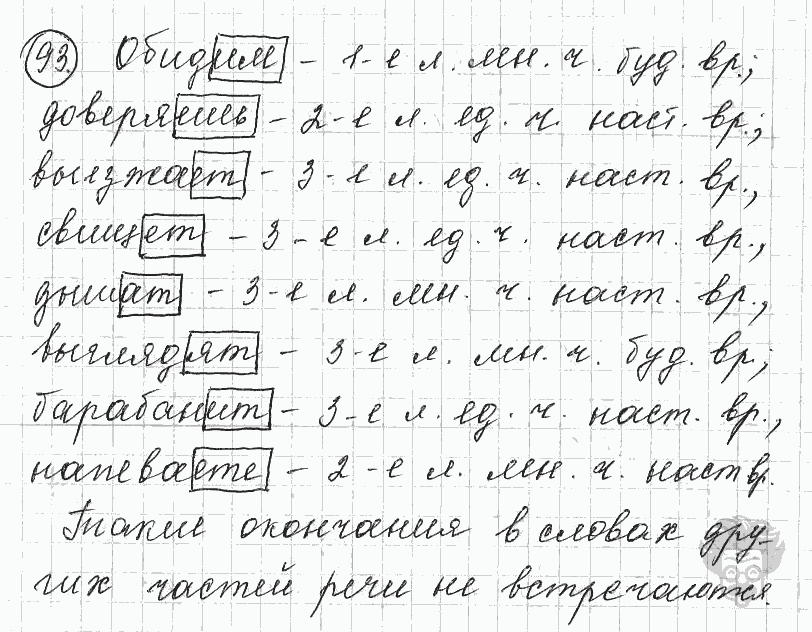 93. Обидим - 1-е л. мн. ч. буд. вр.;
доверяешь - 2-е л. ед. ч. наст. вр.;
выезжает - 3-е л. ед. ч. наст. вр.,
свищет - 3-е л. ед. ч. наст. вр.,
дышат - 3-е л. мн. ч. наст. вр.,
выглядят - 3-е л. мн. ч. буд. вр.;
барабанит - 3-е л. ед. ч. наст. вр.,
напеваете - 2-е л. мн. ч. наст вр.
Такие окончания в словах дру-
гих частей речи не встречаются.